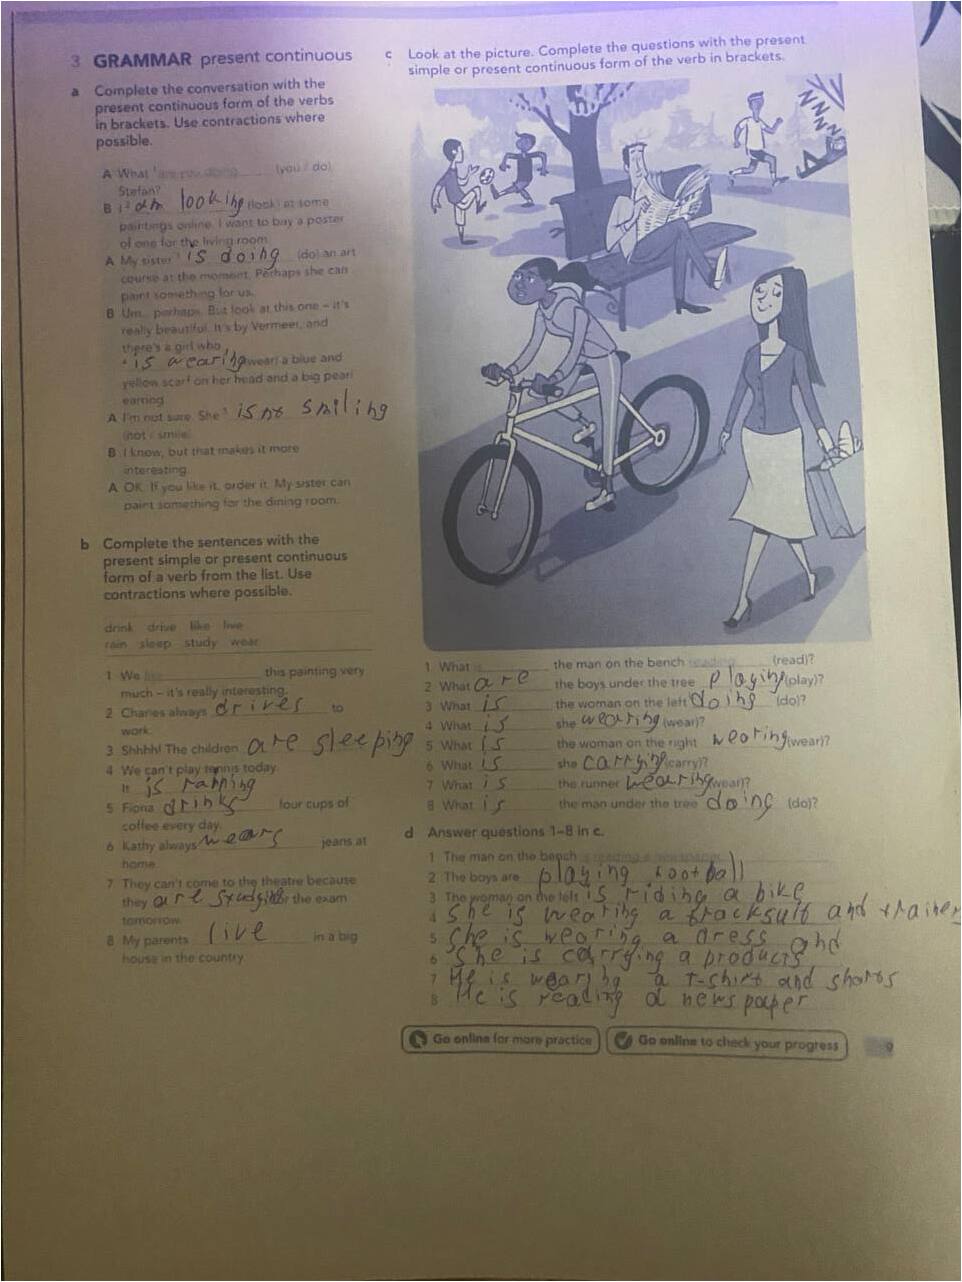 3 GRAMMAR present continuous
a Complete the conversation with the
present continuous form of the verbs
in brackets. Use contractions where
possible.
A What ¹are you doing (you / do)
Stefan?
B I ² am looking (look) at some
paintings online. I want to buy a poster
of one for the living room.
A My sister ³ is doing (do) an art
course at the moment. Perhaps she can
paint something for us.
B Um... perhaps. But look at this one – it's
really beautiful. It's by Vermeer, and
there's a girl who
⁴ is wearing (wear) a blue and
yellow scarf on her head and a big pearl
earring.
A I'm not sure. She ⁵ is not smiling
(not / smile)
B I know, but that makes it more
interesting.
A OK. If you like it, order it. My sister can
paint something for the dining room.
b Complete the sentences with the
present simple or present continuous
form of a verb from the list. Use
contractions where possible.
drink drive like live
rain sleep study wear
1 We like this painting very
much – it's really interesting.
2 Charles always drives to
work.
3 Shhhh! The children are sleeping
4 We can't play tennis today.
It is raining
5 Fiona drinks four cups of
coffee every day.
6 Kathy always wears jeans at
home.
7 They can't come to the theatre because
they are studying for the exam
tomorrow.
8 My parents live in a big
house in the country.
c Look at the picture. Complete the questions with the present
simple or present continuous form of the verb in brackets.
ZZZZZ
1 What is the man on the bench reading (read)?
2 What are the boys under the tree playing (play)?
3 What is the woman on the left doing (do)?
4 What is she wearing (wear)?
5 What is the woman on the right wearing (wear)?
6 What is she carrying (carry)?
7 What is the runner wearing (wear)?
8 What is the man under the tree doing (do)?
d Answer questions 1–8 in c.
1 The man on the bench is reading a newspaper.
2 The boys are playing football
3 The woman on the left is riding a bike
4 She is wearing a tracksuit and trainers
5 She is wearing a dress and
6 She is carrying a products
7 He is wearing a T-shirt and shorts
8 He is reading a newspaper
Go online for more practice
Go online to check your progress
9